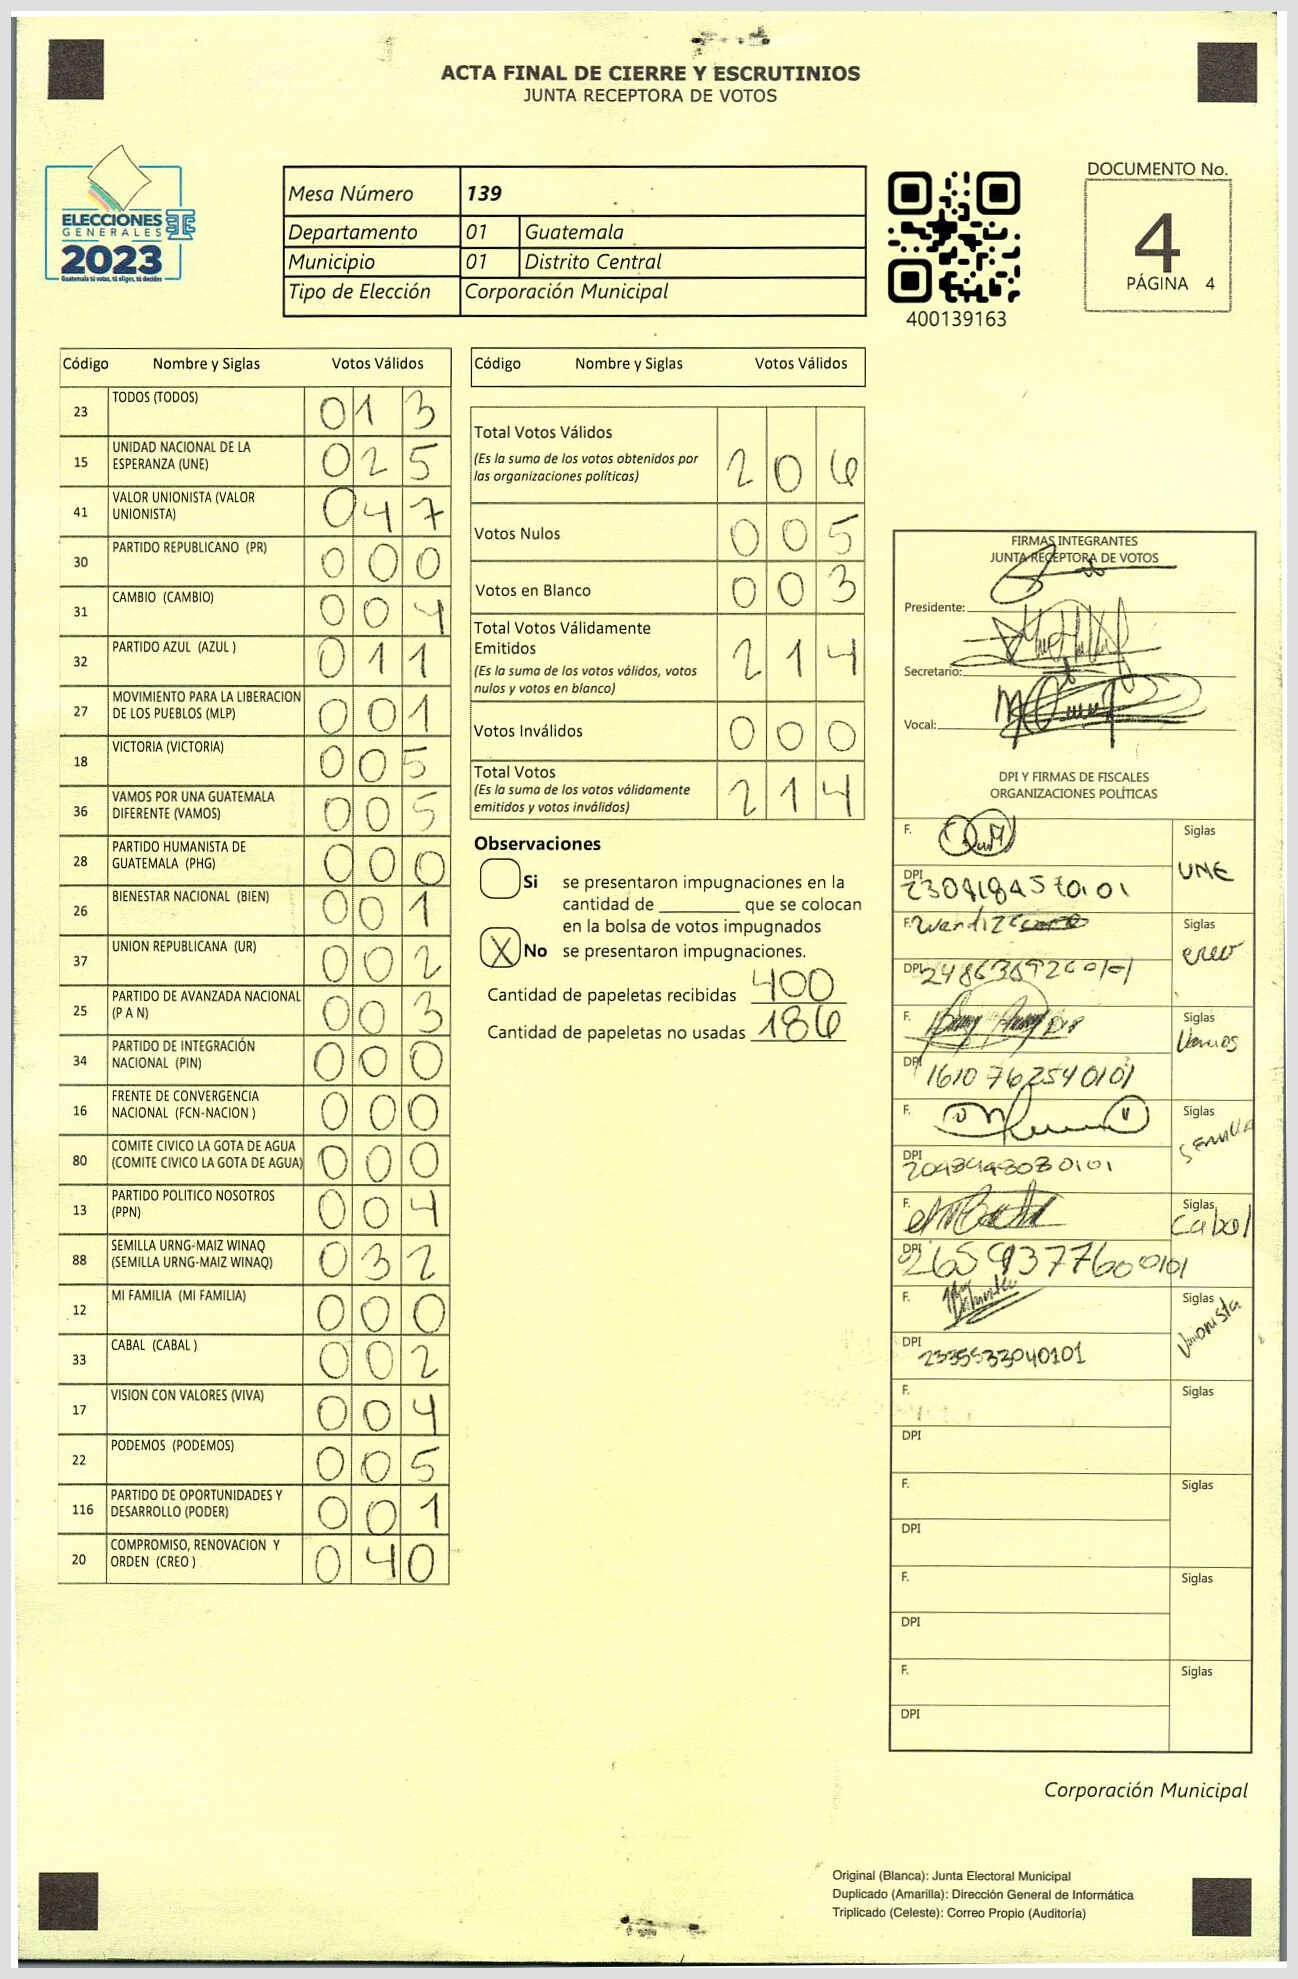 ACTA FINAL DE CIERRE Y ESCRUTINIOS
JUNTA RECEPTORA DE VOTOS
ELECCIONES
GENERALES
2023
Guatemala tú votas, tú eliges, tú decides
Mesa Número 139
Departamento 01 Guatemala
Municipio 01 Distrito Central
Tipo de Elección Corporación Municipal
400139163
DOCUMENTO No.
4
PÁGINA 4
Código Nombre y Siglas Votos Válidos
23 TODOS (TODOS) 0 1 3
15 UNIDAD NACIONAL DE LA
ESPERANZA (UNE) 0 2 5
41 VALOR UNIONISTA (VALOR
UNIONISTA) 0 4 7
30 PARTIDO REPUBLICANO (PR) 0 0 0
31 CAMBIO (CAMBIO) 0 0 4
32 PARTIDO AZUL (AZUL ) 0 1 1
27 MOVIMIENTO PARA LA LIBERACION
DE LOS PUEBLOS (MLP) 0 0 1
18 VICTORIA (VICTORIA) 0 0 5
36 VAMOS POR UNA GUATEMALA
DIFERENTE (VAMOS) 0 0 5
28 PARTIDO HUMANISTA DE
GUATEMALA (PHG) 0 0 0
26 BIENESTAR NACIONAL (BIEN) 0 0 1
37 UNION REPUBLICANA (UR) 0 0 2
25 PARTIDO DE AVANZADA NACIONAL
(P A N) 0 0 3
34 PARTIDO DE INTEGRACIÓN
NACIONAL (PIN) 0 0 0
16 FRENTE DE CONVERGENCIA
NACIONAL (FCN-NACION ) 0 0 0
80 COMITE CIVICO LA GOTA DE AGUA
(COMITE CIVICO LA GOTA DE AGUA) 0 0 0
13 PARTIDO POLITICO NOSOTROS
(PPN) 0 0 4
88 SEMILLA URNG-MAIZ WINAQ
(SEMILLA URNG-MAIZ WINAQ) 0 3 2
12 MI FAMILIA (MI FAMILIA) 0 0 0
33 CABAL (CABAL ) 0 0 2
17 VISION CON VALORES (VIVA) 0 0 4
22 PODEMOS (PODEMOS) 0 0 5
116 PARTIDO DE OPORTUNIDADES Y
DESARROLLO (PODER) 0 0 1
20 COMPROMISO, RENOVACION Y
ORDEN (CREO ) 0 4 0
Código Nombre y Siglas Votos Válidos
Total Votos Válidos
(Es la suma de los votos obtenidos por
las organizaciones políticas) 2 0 6
Votos Nulos 0 0 5
Votos en Blanco 0 0 3
Total Votos Válidamente
Emitidos
(Es la suma de los votos válidos, votos
nulos y votos en blanco) 2 1 4
Votos Inválidos 0 0 0
Total Votos
(Es la suma de los votos válidamente
emitidos y votos inválidos) 2 1 4
Observaciones
Si se presentaron impugnaciones en la
cantidad de ________ que se colocan
en la bolsa de votos impugnados
X No se presentaron impugnaciones.
Cantidad de papeletas recibidas 400
Cantidad de papeletas no usadas 186
FIRMAS INTEGRANTES
JUNTA RECEPTORA DE VOTOS
Presidente:
Secretario:
Vocal:
DPI Y FIRMAS DE FISCALES
ORGANIZACIONES POLÍTICAS
F. Siglas
DPI UNE
F. Siglas
DPI creo
F. Siglas
DPI 1610 76254 0101 Vamos
F. Siglas
DPI SEMILLA
F. Siglas
DPI 2659377600101 Cabal
F. Siglas
DPI 2335533040101 Unionista
F. Siglas
DPI
F. Siglas
DPI
F. Siglas
DPI
F. Siglas
DPI
Corporación Municipal
Original (Blanca): Junta Electoral Municipal
Duplicado (Amarilla): Dirección General de Informática
Triplicado (Celeste): Correo Propio (Auditoría)